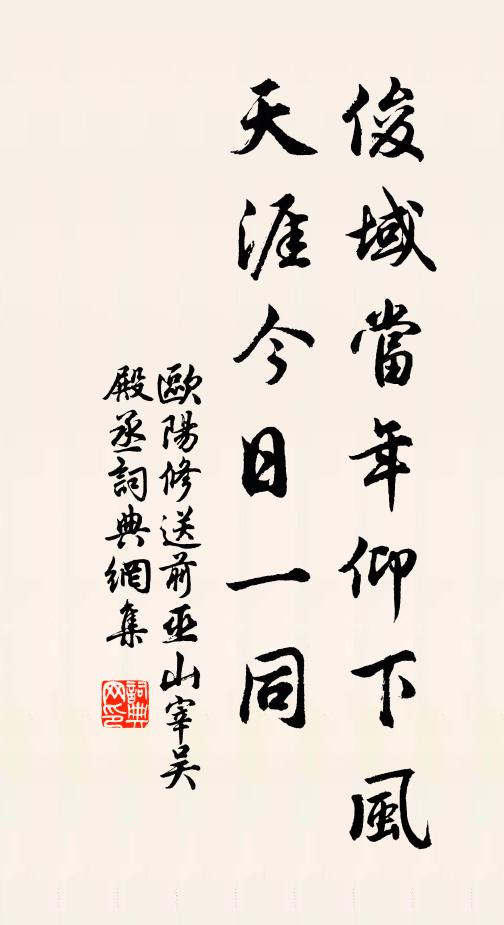 俊域當年仰下風
天涯今日一同
歐陽修送前巫山宰吴
殿丞詞典網集
詞典
网印